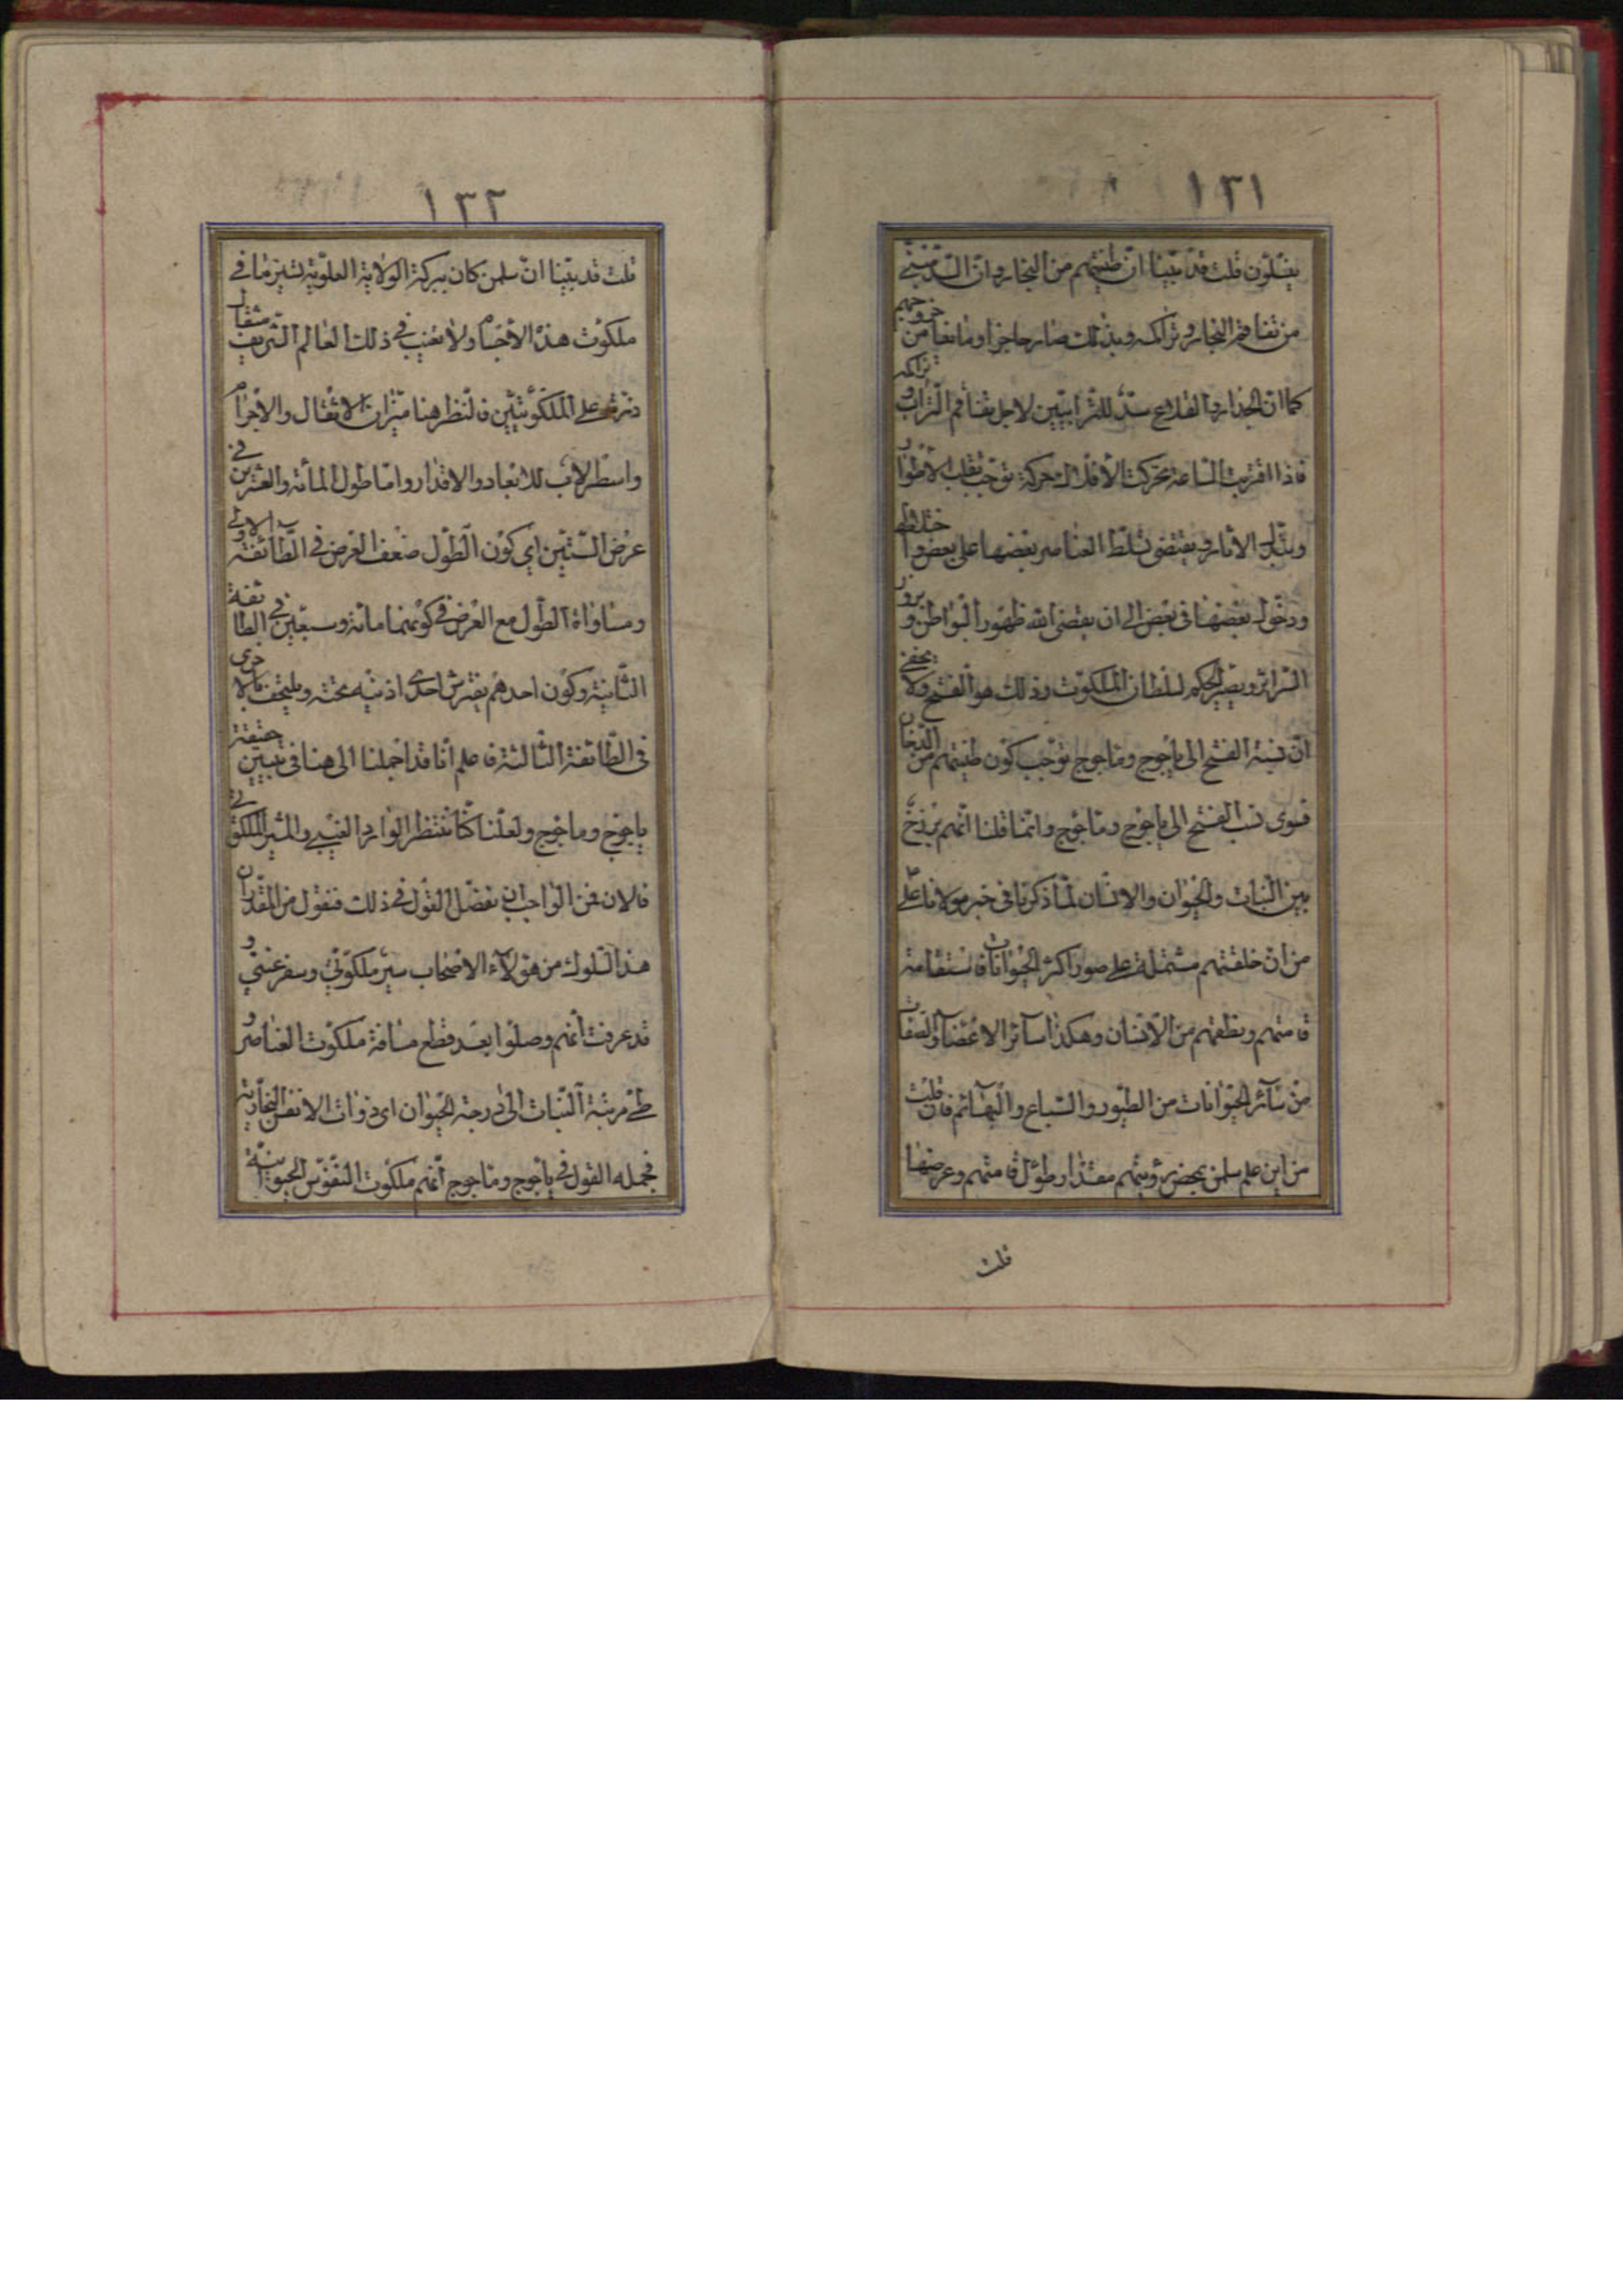 ١٣١
ينسلون قلت قد بيّنا انّ طينتهم من البخار وانّ السّد مبنيّ
من تفاقم البخار وتراكمه وبذلك صار حاجزا ومانعا من خروجهم
كما انّ الجدار والقلاع سدّ للترابيّين لاجل تفاقم التّراب وتراكمه
فاذا اقتربت السّاعة تحركت الأفلاك حركة توجب تقلب الأطوار
وتبدّل الاثار ويقتضى تسلّط العناصر بعضها على بعض واختلاطها
ودخول بعضها فى بعض الى ان يقضى الله ظهور البواطن وبروز
السّرائر ويصير الحكم لسلطان الملكوت وذلك هو الفتح ولا يخفى
انّ نسبة الفتح الى ياجوج وماجوج توجب كون طينتهم من الدّخان
فسوى نسب الفتح الى ياجوج وماجوج وانّما قلنا انّهم برزخ
بين النّبات والحيوان والانسان لما ذكرنا فى خبر مولانا علىّ
من انّ خلقتهم مشتملة على صور اكثر الحيوانات فاستقامة
قامتهم ونطقهم من الانسان وهكذا سائر الاعضاء والصّفات
من سائر الحيوانات من الطّيور والسّباع والبهائم فان قلت
من اين علم سلمن بمحض رؤيتهم مقدار طول قامتهم وعرضها
قلت
١٣٢
قلت قد بيّنا انّ سلمن كان ببركة الولاية العلويّة يسير ما فى
ملكوت هذه الأجسام ولا يغيب فى ذلك العالم الشّريف مثقال
ذرّة على الملكوتيّين فالنّظر هنا ميزان الاثقال والاجرام
واسطرلاب للابعاد والاقدار وامّا طول المائة والعشرين فى
عرض السّتّين اى كون الطّول ضعف العرض فى الطّائفة الاولى
ومساواة الطّول مع العرض فى كونهما مائة وسبعين فى الطائفة
الثّانية وكون احدهم يفترش احدى اذنيه تحته ويلتحف بالاخرى
فى الطّائفة الثّالثة فاعلم انّا قد اجملنا الى هنا فى تبيين حقيقة
ياجوج وماجوج ولعلّنا كنّا ننتظر الوارد الغيبى والسّير الملكوتى
فالان فمن الواجب ان نفصّل القول فى ذلك فنقول من المقدّر ان
هذا السّلوك من هؤلاء الاصحاب سير ملكوتىّ وسفر غيبىّ و
قد عرفت انّهم وصلوا بعد قطع مسافة ملكوت العناصر و
طىّ مرتبة النّبات الى درجة الحيوان اى ذوات الانفس البخاريّة
فجملة القول فى ياجوج وماجوج انّهم ملكوت النّفوس الحيوانيّة